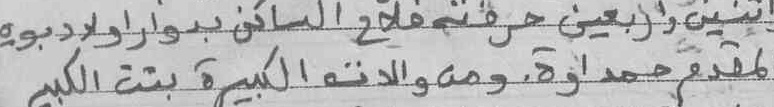 اثنين وأربعين حرفته فلاح الساكن بدوار اولاد بويه
لمقدم حمداوة. ومن والدته الكبيرة بنت الكبير